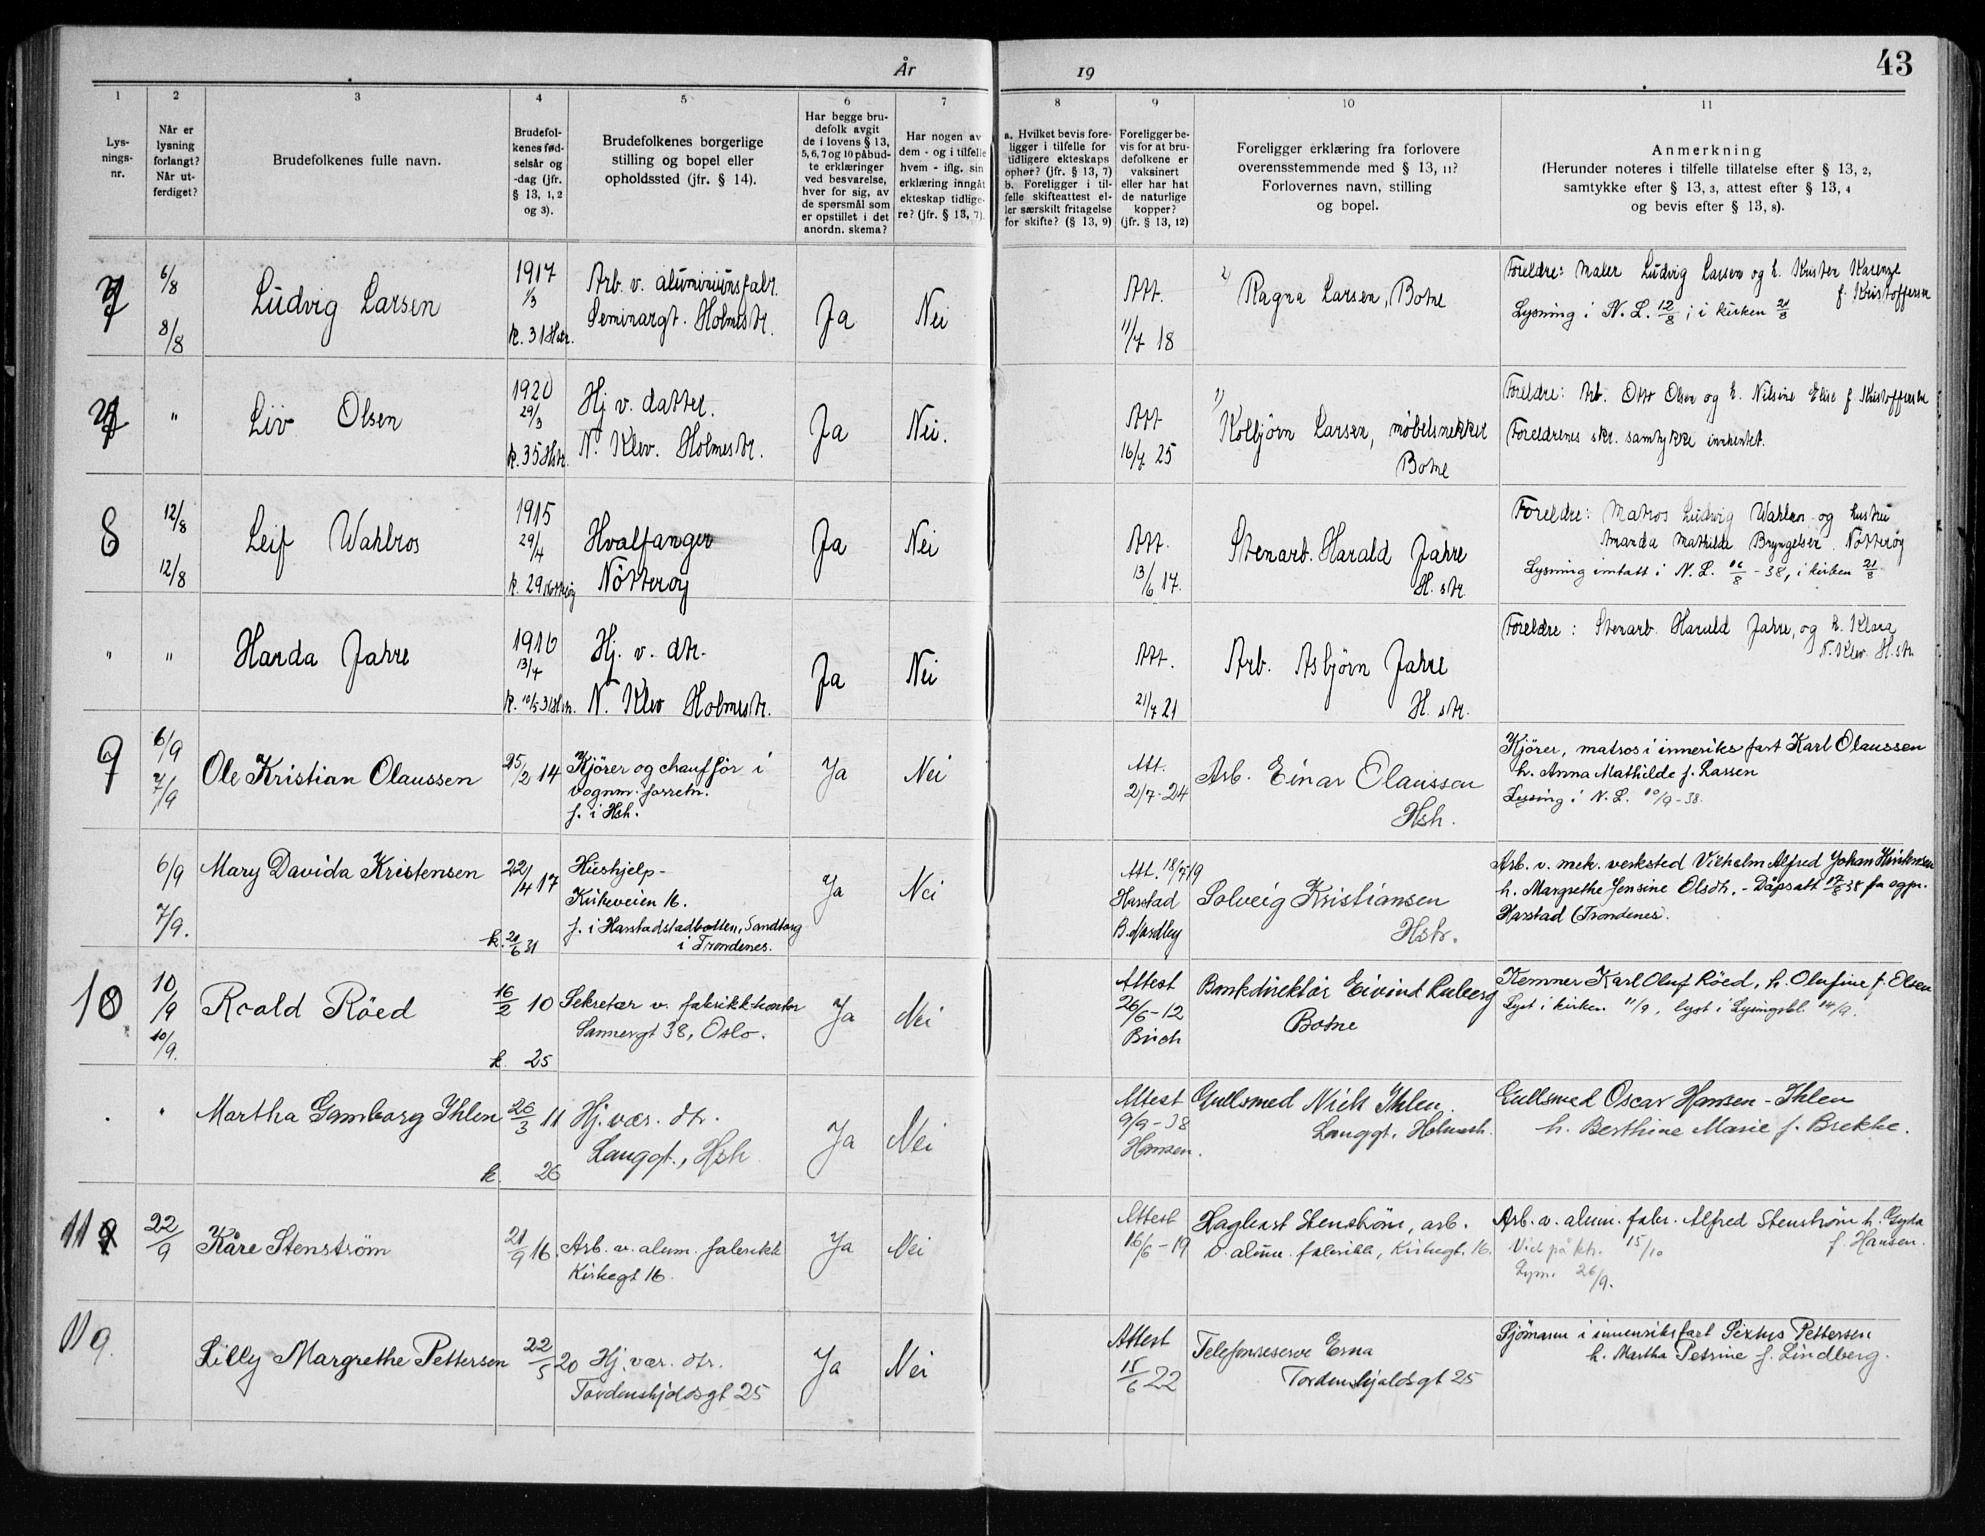 År
19
43
1 2 3 4 5 6 7 8 9 10 11
Lys-
nings-
nr.
Når er
lysning
forlangt?
Når ut-
ferdiget?
Brudefolkenes fulle navn.
Brudefol-
kenes fød-
selsår og
-dag (jfr.
§ 13, 1, 2
og 3).
Brudefolkenes borgerlige
stilling og bopel eller
opholdssted (jfr. § 14).
Har begge bru-
defolk avgit
de i lovens § 13,
5, 6, 7 og 10 påbud-
te erklæringer
ved besvarelse,
hver for sig, av
de spørsmål som
er opstillet i det
anordn. skema?
Har nogen av
dem - og i tilfelle
hvem - iflg. sin
erklæring inngåt
ekteskap tidlige-
re? (jfr. § 13, 7).
a. Hvilket bevis fore-
ligger i tilfelle for
tidligere ekteskaps
ophør? (jfr. § 13, 7)
b. Foreligger i til-
felle skifteattest el-
ler særskilt fritagelse
for skifte? (§ 13, 9)
Foreligger be-
vis for at bru-
defolkene er
vaksinert
eller har hat
de naturlige
kopper?
(jfr. § 13, 12)
Foreligger erklæring fra forlovere
overensstemmende med § 13, 11?
Forlovernes navn, stilling
og bopel.
Anmerkning
(Herunder noteres i tilfelle tillatelse efter § 13, 2,
samtykke efter § 13, 3, attest efter § 13, 4
og bevis efter § 13, 8).
7
6/8
8/8
Ludvig Larsen
1917
1/3
k. 31 Hstr.
Arb. v. aluminiumsfabr.
Seminargt. Holmestr.
Ja
Nei
Att.
11/7 18
1) Ragna Larsen, Botne
Foreldre: Maler Ludvig Larsen og h. Kristen Karenze
f. Kristoffersen
Lysning i N. L. 12/8; i kirken 21/8
7
"
Liv Olsen
1920
29/3
k. 35 Hstr.
Hj. v. datter.
N. Klev. Holmestr.
Ja
Nei.
Att
16/7 25
1) Kolbjørn Larsen, møbelsnekker
Botne
Foreldre: Arb. Otto Olsen og h. Nilsine Elise f. Kristoffersen
Foreldrenes skr. samtykke innhentet.
8
12/8
12/8
Leif Wahlros
1915
29/4
k. 29 Nøtterøy
Hvalfanger
Nøtterøy
Ja
Nei
Att.
13/6 17.
Stenarb. Harald Jahre
H. str.
Foreldre: Matros Ludvig Wahlros og hustru
Amanda Mathilde Bryngelsen. Nøtterøy
Lysning inntatt i N. L. 16/8 - 38, i kirken 21/8
"
"
Harda Jahre
1916
13/4
k. 10/5 31 Hstr.
Hj. v. dtr.
N. Klev Holmestr.
Ja
Nei
Att.
21/7 21
Arb. Asbjørn Jahre
H. str.
Foreldre: Stenarb. Harald Jahre, og h. Klara
N. Klev. H. str.
9
6/9
7/9
Ole Kristian Olaussen
25/2 14
Kjører og chauffør i
vognm. forretn.
f. i Hsh.
Ja
Nei
Att.
2/7-24
Arb. Einar Olaussen
Hsh.
Kjører, matros i innenriks fart Karl Olaussen
h. Anna Mathilde f. Larsen
Lysning i N. L. 10/9-38.
6/9
7/9.
Mary Davida Kristensen
22/4 17
k. 21/6 31
Hushjelp-
Kirkeveien 16.
f. i Harstadstadbotten, Sandtorg
i Trondenes.
Ja
Nei
Att. 18/7 19
Harstad
B. Nordby
Solveig Kristiansen
Hstr.
Arb. v. mek. verksted Vilhelm Alfred Johan Kristensen
h. Margrethe Jensine Olsdt. - Dåpsatt 17/8 38 fra sogpr.
Harstad (Trondenes).
10
10/9
10/9.
Roald Röed
16/2 10
k. 25
Sekretær v. fabrikk-kontor
Sannergt 38, Oslo.
Ja
Nei
Attest
26/6-12
Birch
Bankdirektør Eivind
Botne
Kemner Karl Oluf Röed, h. Olufine f. Olsen
Lyst i kirken 11/9, lyst i Lysingsbl. 14/9.
.
"
Martha Gamborg Ihlen
26/3 11
k. 26
Hj. vær. dtr.
Langgt., Hsh
Ja
Nei
Attest
9/9-38
Hansen.
Gullsmed Nick Ihlen.
Langgt. Holmesh.
Gullsmed Oscar Hansen-Ihlen
h. Berthine Marie f. Brekke.
11
22/9
Kåre Stenström
21/9 16.
Arb. v. alum. fabrikk
Kirkegt 16.
Ja
Nei
Attest
16/6-19
Haglund Stenström, arb.
v. alum. fabrikk, Kirkegt. 16.
Arb. v. alum. fabr. Alfred Stenström h. Gyda
f. Hansen.
Viet på ktr. 15/10
Lysn. 26/9.
11 9.
Lilly Margrethe Pettersen
22/5 20
Hj. vær. dtr.
Tordenskjoldsgt 25
Ja
Nei
Attest
15/6 22
Erna
Tordenskjoldsgt 25
Sjömann i innenriksfart Sixtus Pettersen
h. Martha Petrine f. Lindberg.